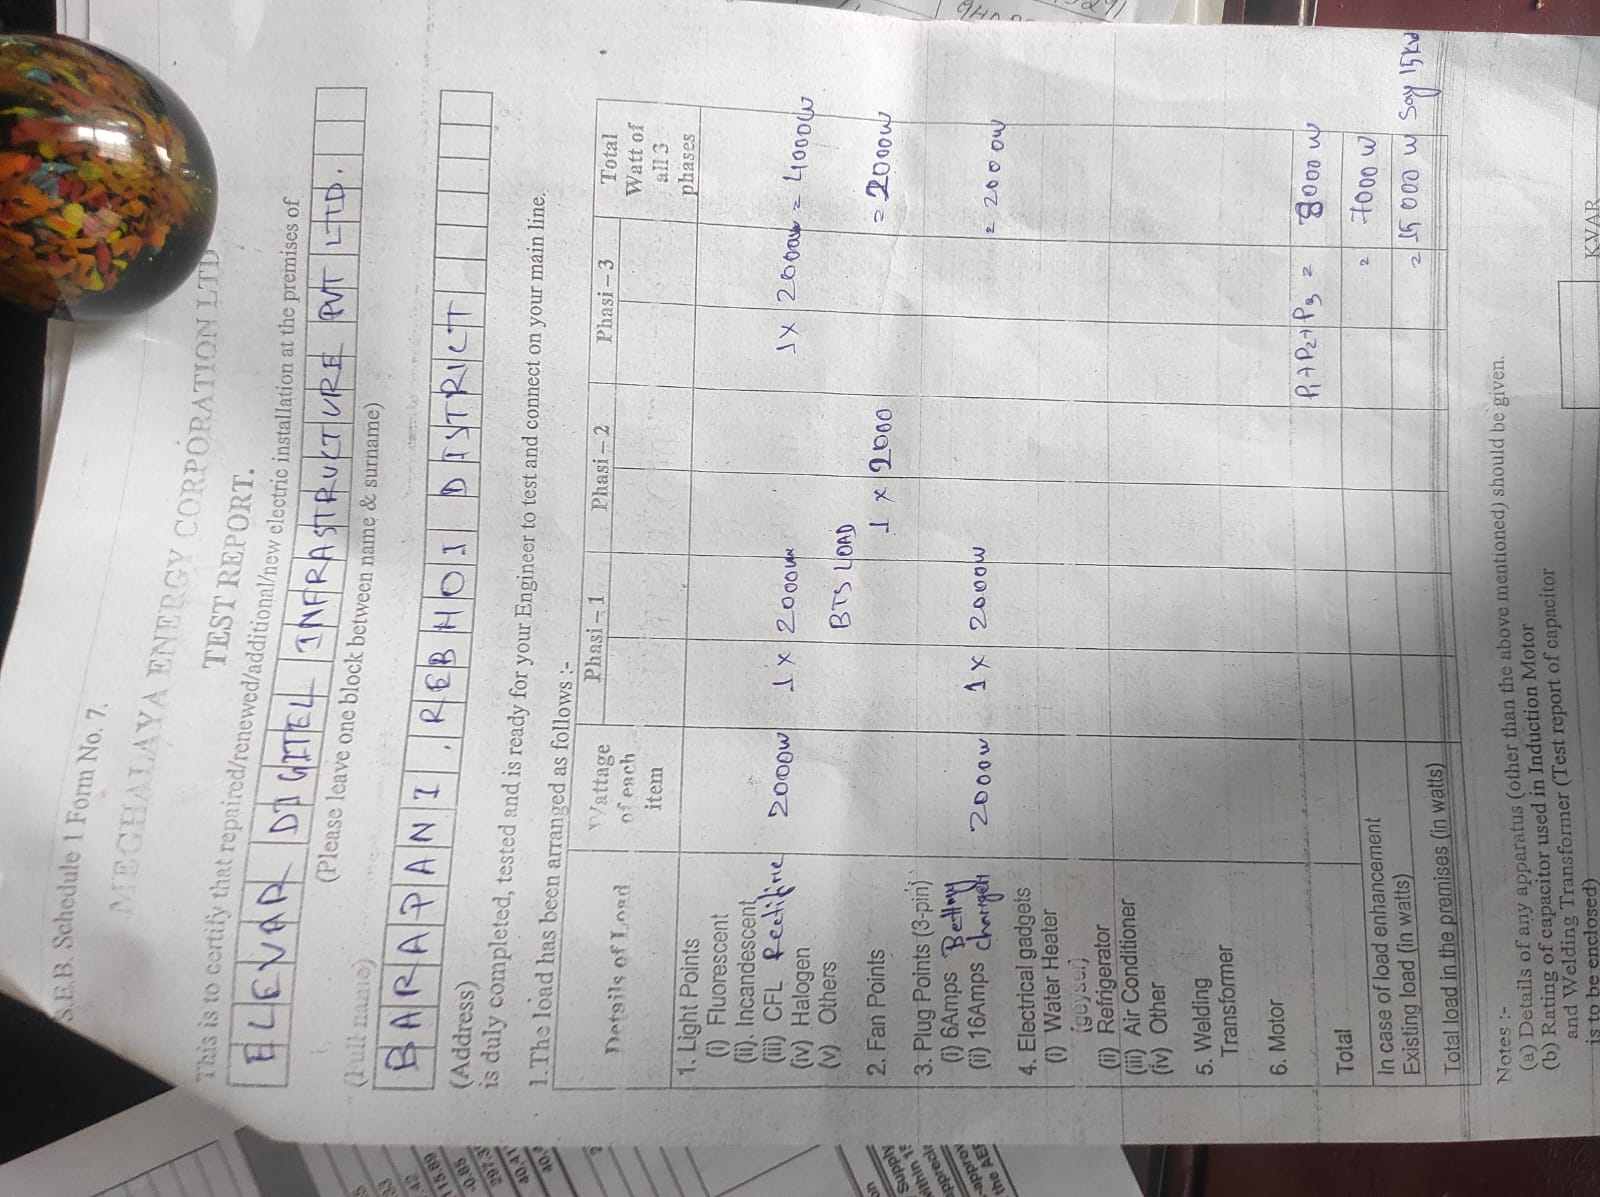 S.E.B. Schedule 1 Form No. 7.
MEGHALAYA ENERGY CORPORATION LTD
TEST REPORT.
This is to certify that repaired/renewed/additional/new electric installation at the premises of
ELEVAR DIGITEL INFRASTRUCTURE PVT LTD.
(Please leave one block between name & surname)
(Full name)
BARAPANI, REBHOI DISTRICT
(Address)
is duly completed, tested and is ready for your Engineer to test and connect on your main line.
1. The load has been arranged as follows :-
Details of Load Wattage of each item Phasi – 1 Phasi – 2 Phasi – 3 Total Watt of all 3 phases
1. Light Points
(i) Fluorescent
(ii). Incandescent
(iii) CFL Rectifire 2000W 1 x 2000W 1 x 2000W = 4000W
(iv) Halogen
(v) Others BTS LOAD
2. Fan Points 1 x 2000 = 2000W
3. Plug Points (3-pin)
(i) 6Amps Battery
(ii) 16Amps charger 2000W 1 x 2000W = 2000W
4. Electrical gadgets
(i) Water Heater
(geyser)
(ii) Refrigerator
(iii) Air Conditioner
(iv) Other
5. Welding
Transformer
6. Motor P1+P2+P3 = 8000 W
Total
In case of load enhancement = 7000 W
Existing load (in watts)
Total load in the premises (in watts) = 15000 W Say 15KW
Notes :-
(a) Details of any apparatus (other than the above mentioned) should be given.
(b) Rating of capacitor used in Induction Motor
and Welding Transformer (Test report of capacitor
is to be enclosed) KVAR